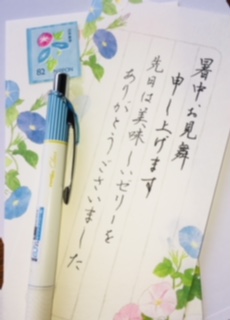 暑中お見舞
申し上げます
先日は美味しいゼリーを
ありがとうございました
82